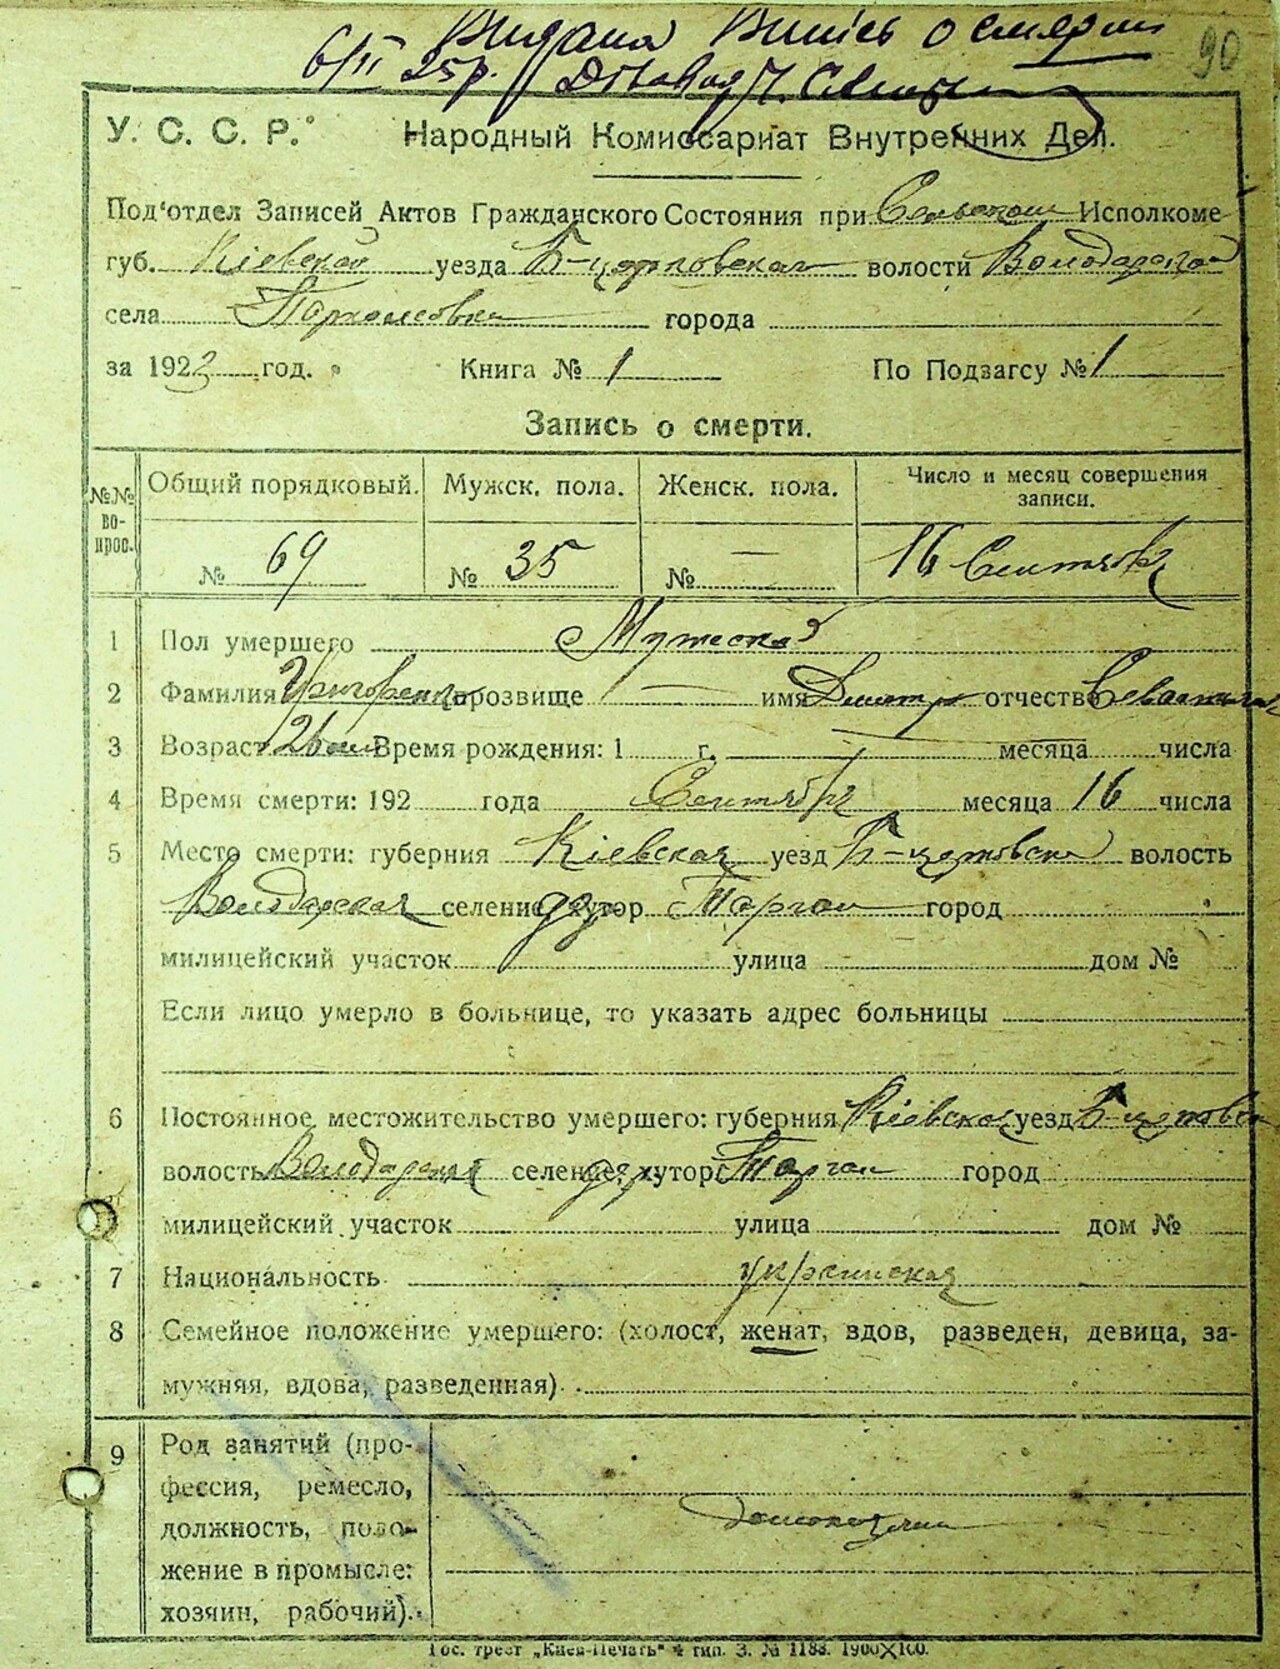 Видана Випісь о смерти 90
6/II 25 р. Діловод
У. С. С. Р. Народный Комиссариат Внутренних Дел.
Под'отдел Записей Актов Гражданского Состояния при Сельском Исполкоме
губ. Кіевской уезда Б-церковская волости Володарской
села города
за 1923 год. Книга № 1 По Подзагсу № 1
Запись о смерти.
№№ вопрос. Общий порядковый. Мужск. пола. Женск. пола. Число и месяц совершения записи.
№ 69 № 35 № — 16 Сентября
1 Пол умершего Мужской
2 Фамилия Григоренко прозвище — имя Дмитр отчество
3 Возраст Время рождения: 1 г. месяца числа
4 Время смерти: 192 года Сентября месяца 16 числа
5 Место смерти: губерния Кіевская уезд Б-церковска волость
Володарская селение, хутор Торган город
милицейский участок улица дом №
Если лицо умерло в больнице, то указать адрес больницы
6 Постоянное местожительство умершего: губерния Кіевская уезд Б-церковск
волость Володарская селение, хутор Торган город
милицейский участок улица дом №
7 Национальность украинская
8 Семейное положение умершего: (холост, женат, вдов, разведен, девица, за-
мужняя, вдова, разведенная)
9 Род занятий (про-
фессия, ремесло,
должность, поло-
жение в промысле:
хозяин, рабочий).
Гос. трест „Киев-Печать" 4 тип. З. № 1183. 1900X100.